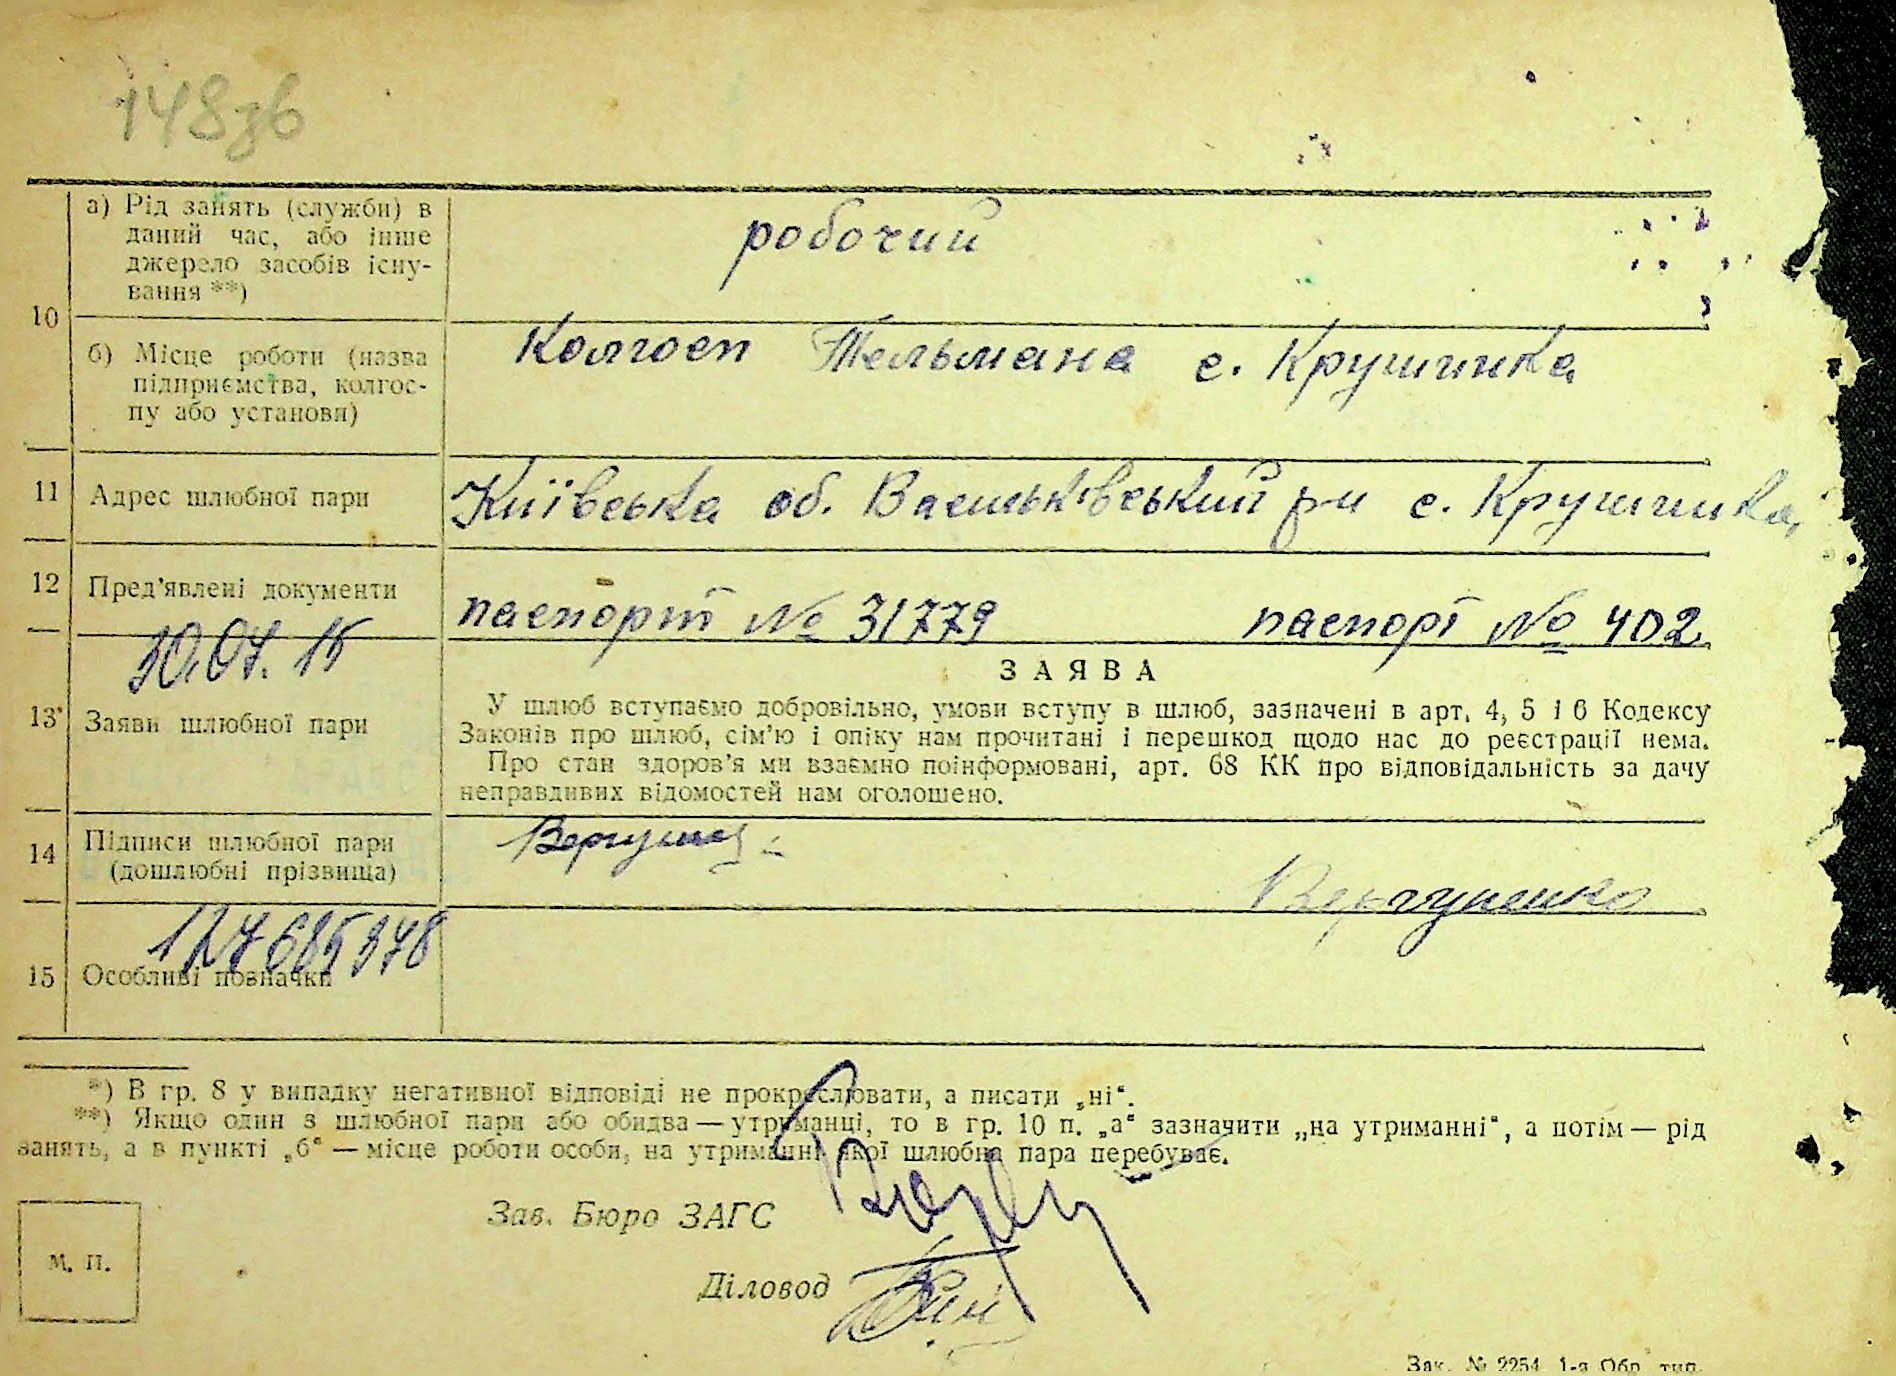 148зв
10
а) Рід занять (служби) в
даний час, або інше
джерело засобів існу-
вання **)
робочий
б) Місце роботи (назва
підприємства, колгос-
пу або установи)
Колгосп Тельмана с. Крушинка
11
Адрес шлюбної пари
Київська об. Васильківський р-н с. Крушинка,
12
Пред'явлені документи
паспорт № 31779 паспорт № 402
30.07.15
13
Заяви шлюбної пари
ЗАЯВА
У шлюб вступаємо добровільно, умови вступу в шлюб, зазначені в арт. 4, 5 і 6 Кодексу
Законів про шлюб, сім'ю і опіку нам прочитані і перешкод щодо нас до реєстрації нема.
Про стан здоров'я ми взаємно поінформовані, арт. 68 КК про відповідальність за дачу
неправдивих відомостей нам оголошено.
14
Підписи шлюбної пари
(дошлюбні прізвища)
15
Особливі позначки
*) В гр. 8 у випадку негативної відповіді не прокреслювати, а писати „ні“.
**) Якщо один з шлюбної пари або обидва — утриманці, то в гр. 10 п. „а“ зазначити „на утриманні“, а потім — рід
занять, а в пункті „б“ — місце роботи особи, на утриманні якої шлюбна пара перебуває.
Зав. Бюро ЗАГС
М. П.
Діловод
Зак. № 2254 1-а Обр. тип.